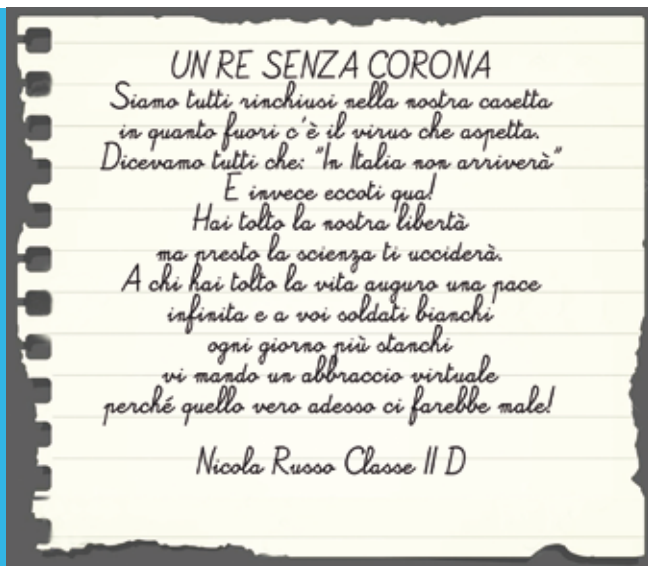 UN RE SENZA CORONA
Siamo tutti rinchiusi nella nostra casetta
in quanto fuori c'è il virus che aspetta.
Dicevamo tutti che: "In Italia non arriverà"
E invece eccoti qua!
Hai tolto la nostra libertà
ma presto la scienza ti ucciderà.
A chi hai tolto la vita auguro una pace
infinita e a voi soldati bianchi
ogni giorno più stanchi
vi mando un abbraccio virtuale
perché quello vero adesso ci farebbe male!
Nicola Russo Classe II D